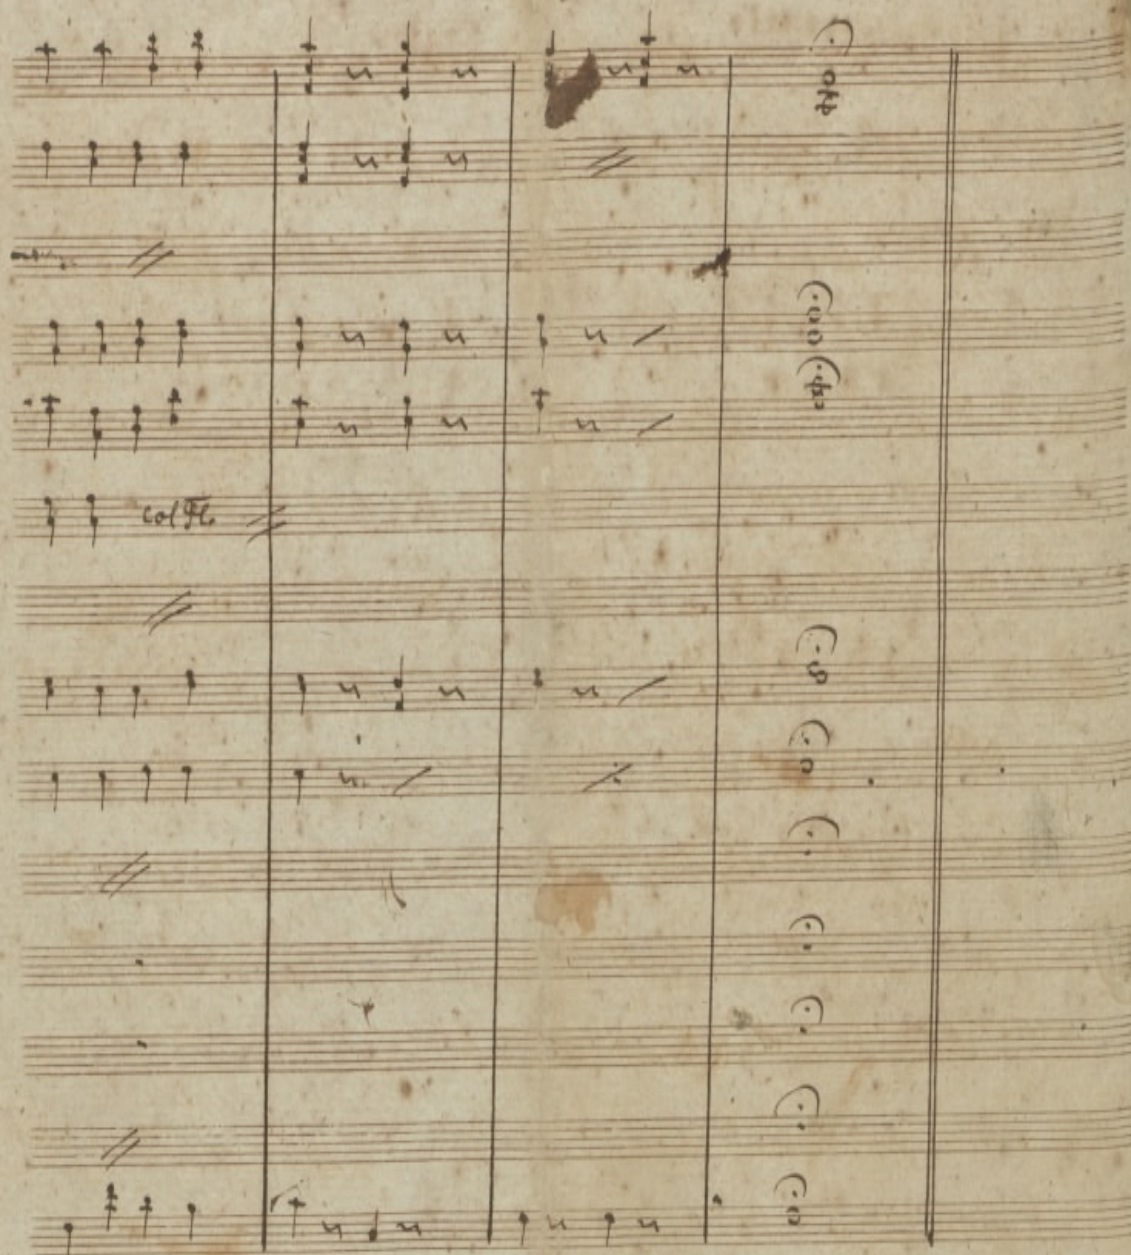 col Fl.